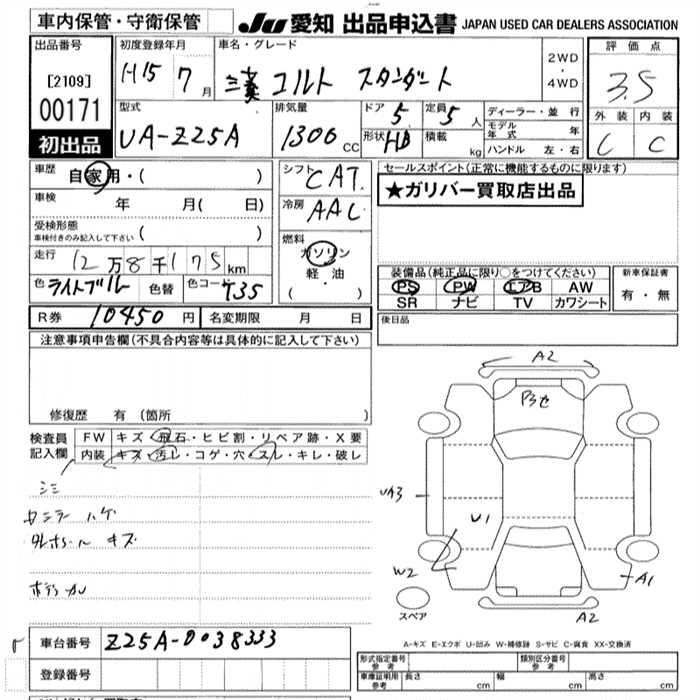 車内保管・守衛保管
Ju 愛知 出品申込書 JAPAN USED CAR DEALERS ASSOCIATION
出品番号
[2109]
00171
初出品
初度登録年月
H15 7 月
車名・グレード
三菱 コルト スタンダート
2WD
・
4WD
評価点
3.5
外装 内装
C C
型式
UA-Z25A
排気量
1300 CC
ドア 5
形状 HB
定員 5 人
積載 kg
ディーラー・並行
モデル年式 年
ハンドル 左・右
車歴
自家用・( )
車検
年 月( 日)
受検形態
車検付きのみ記入して下さい ( )
走行
12万8千175km
色 ライトブルー 色替 色コード T35
シフト
CAT
冷房
AAC
燃料
ガソリン
軽油
( ・ )
セールスポイント(正常に機能するものに限ります)
★ガリバー買取店出品
装備品(純正品に限り○をつけてください)
PS PW エアB AW
SR ナビ TV カワシート
新車保証書
有・無
後日品
R券 10450 円 名変期限 月 日
注意事項申告欄(不具合内容等は具体的に記入して下さい)
修復歴 有(箇所 )
検査員
記入欄
FW キズ・飛石・ヒビ割・リペア跡・X要
内装 キズ・汚レ・コゲ・穴・スレ・キレ・破レ
シミ
ハゲ
キズ
A2
UA3
U1
W2
A1
A2
スペア
A-キズ E-エクボ U-凹み W-補修跡 S-サビ C-腐食 XX-交換済
車台番号 Z25A-0038333
登録番号
形式指定番号
参考
類別区分番号
参考
車庫証明用
参考
長さ cm 幅 cm 高さ cm